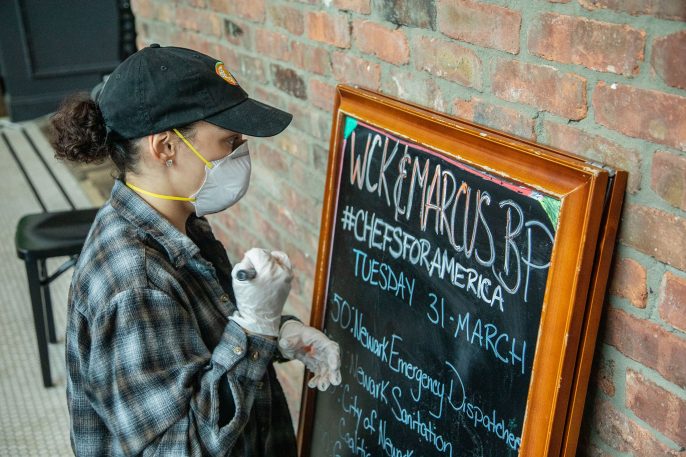 WCK & MARCUS BP
#CHEFSFORAMERICA
TUESDAY 31-MARCH
50: Newark Emergency Dispatchers
Newark Sanitation
City of Newark